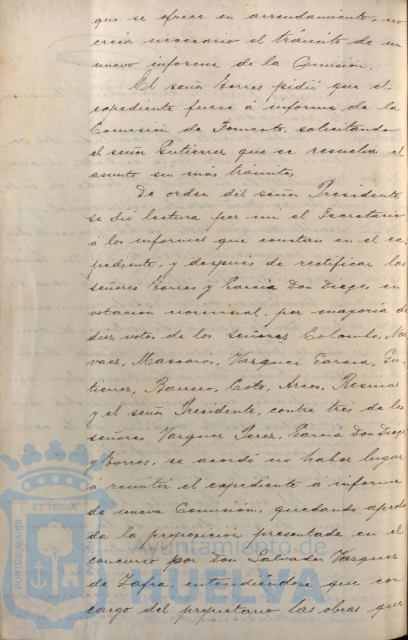 que se ofrece en arrendamiento, no
creía necesario el trámite de un
nuevo informe de la Comisión.
El señor Torres pidió que el
expediente fuese á informe de la
Comisión de Fomento, solicitando
el señor Gutierrez que se resuelva el
asunto sin más trámite.
De orden del señor Presidente
se dió lectura por mi el Secretario
á los informes que constan en el ex
pediente, y después de rectificar los
señores Torres y García Don Diego, en
votación nominal, por mayoría de
diez votos de los señores Colombo, Nar
vaez, Mascarós, Vazquez García, Gu
tierrez, Barrero, Coto, Arcos,
y el señor Presidente, contra tres de los
señores Vazquez Perez, García Don Diego
y Torres, se acordó no haber lugar
á remitir el expediente á informe
de nueva Comisión, quedando aproba
da la proposición presentada en el
concurso por Don Salvador Vazquez
de Zafra, entendiéndose que son
cargo del propietario las obras que
PORTUS MARIS
ET TERRÆ
Ayuntamiento de
HUELVA